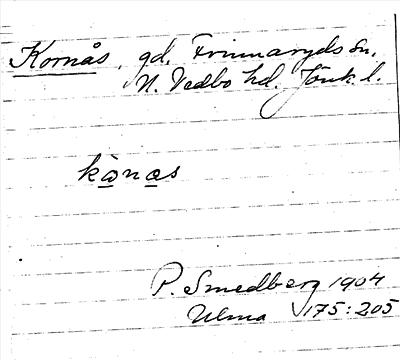 Kornås, gd. Frinnaryds sn.
N. Vedbo hd. Jönk. l.
kò̱na̱s
P. Smedberg 1904
Ulma 175:205